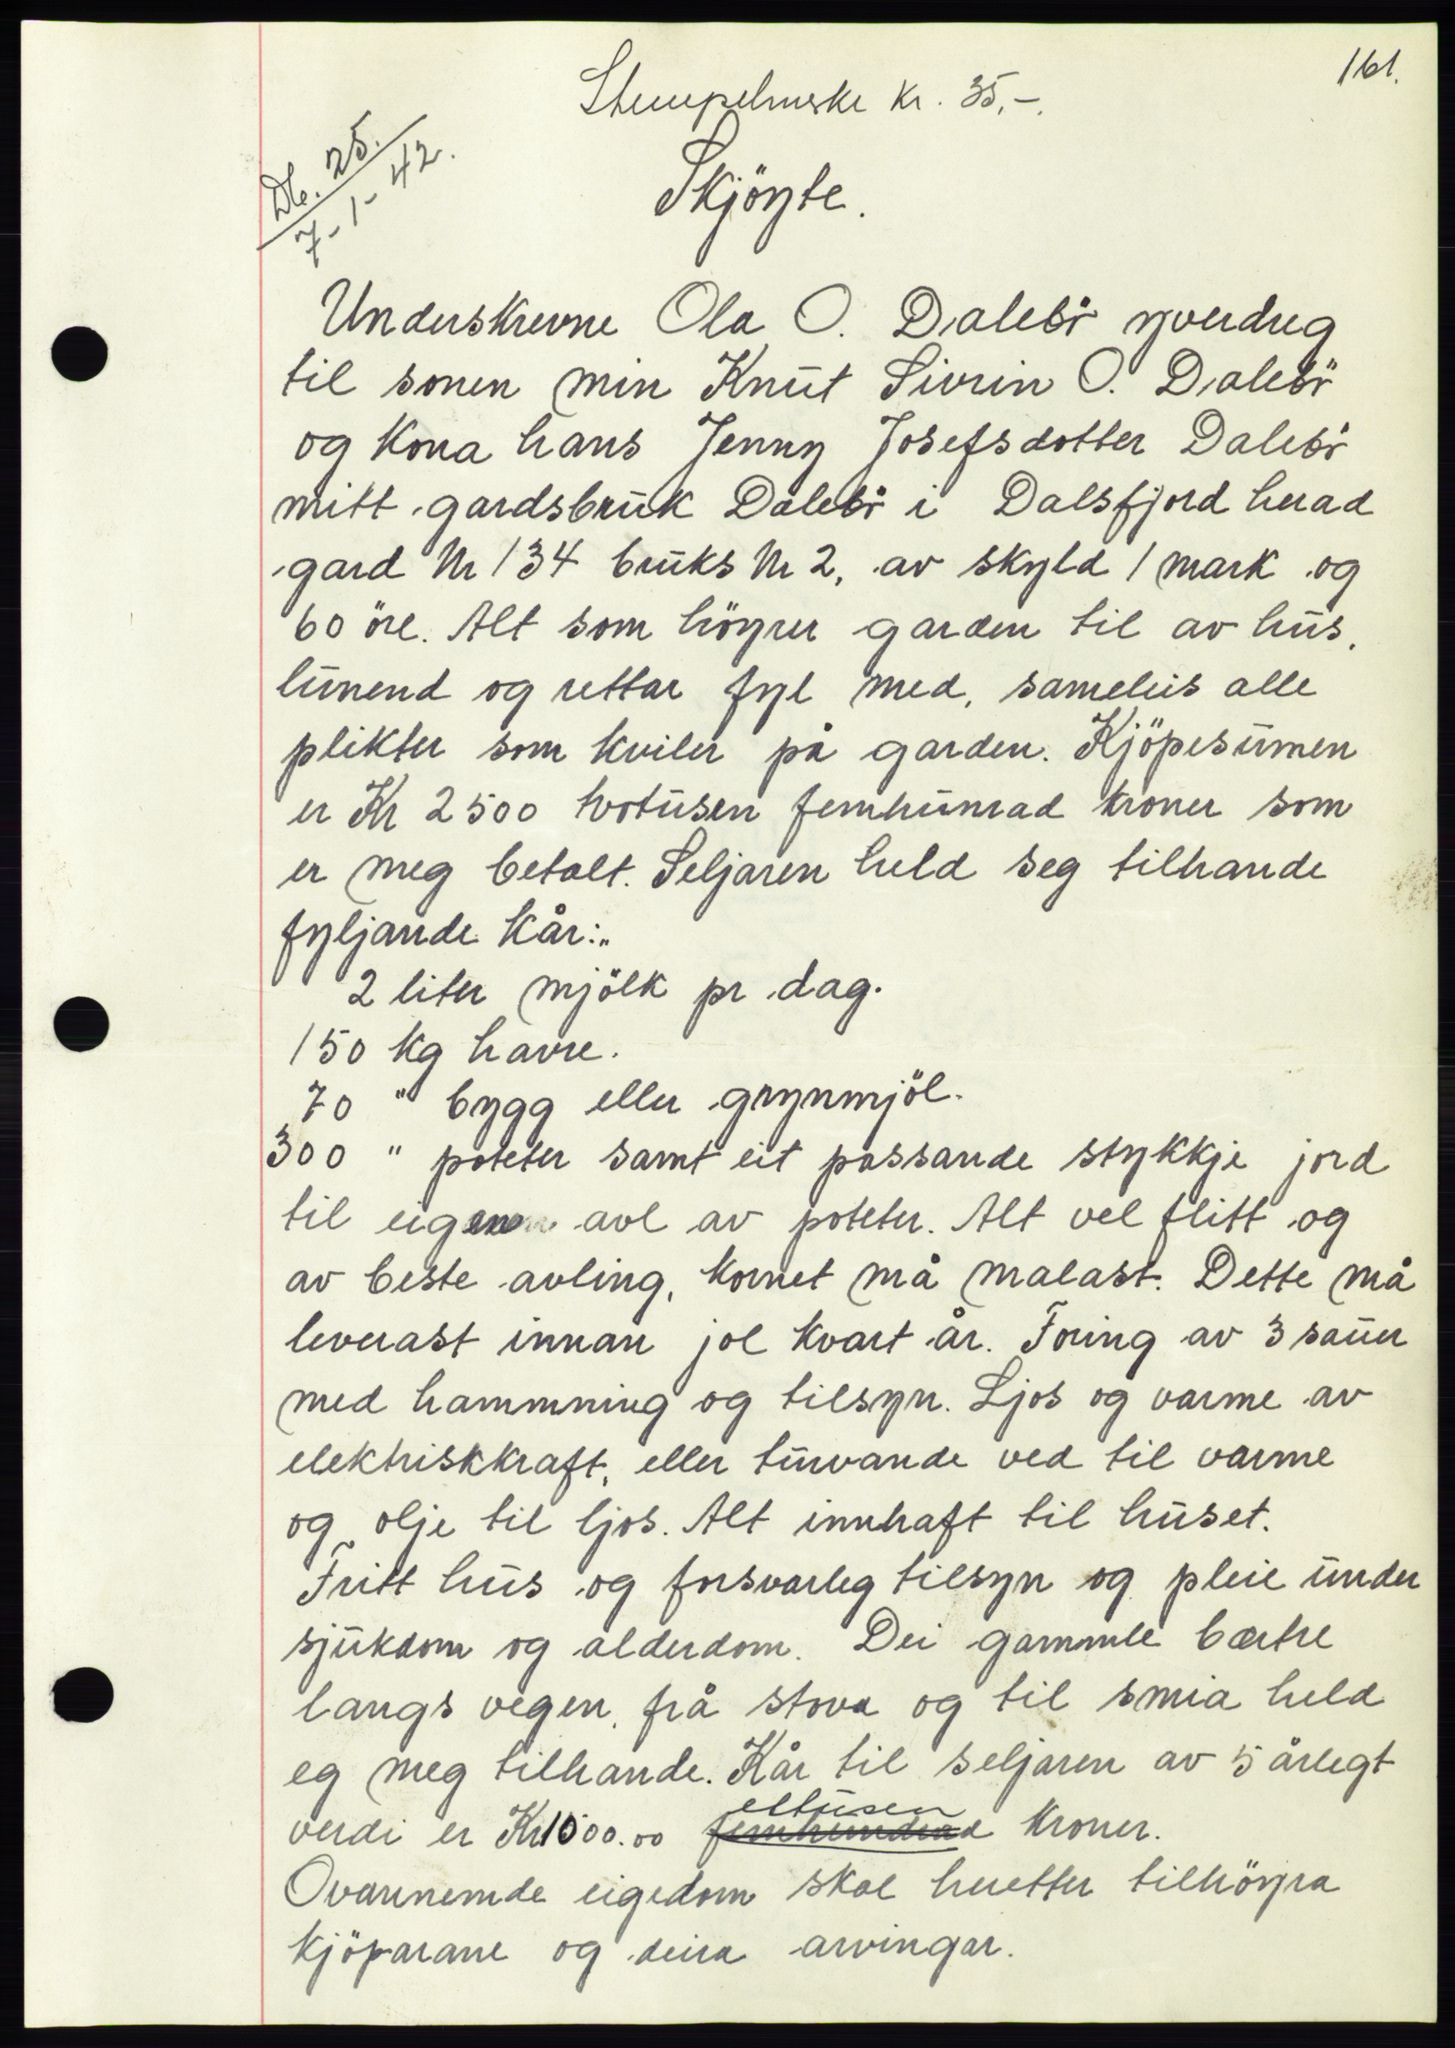 161.
Stempelmerke kr. 35,-.
Db. 25.
7-1-42.
Skjöyte.
Underskrevne Ola O. Dalebö yverdreg
til sonen min Knut Sivrin O. Dalebö
og kona hans Jenny Josefsdotter Dalebö
mitt gardsbruk Dalebö i Dalsfjord herad
gard Nr 134 bruks Nr 2, av skyld 1 mark og
60 öre. Alt som höyrer garden til av hus,
lunend og rettar fyl med, sameleis alle
plikter som kviler på garden. Kjöpesumen
er Kr 2500 totusen femhunrad kroner som
er meg betalt. Seljaren held seg tilhande
fyljande kår:"
2 liter mjölk pr dag.
150 kg havre.
70 " bygg eller grynmjöl.
300 " poteter samt eit passande stykkje jord
til eigen avl av poteter. Alt vel flitt og
av beste avling, kornet må malast. Dette må
leverast innan jol kvart år. Foring av 3 sauer
med hammning og tilsyn. Ljos og varme av
elektriskkraft, eller turvande ved til varme
og olje til ljos. Alt innhaft til huset.
Fritt hus og forsvarleg tilsyn og pleie under
sjukdom og alderdom. Dei gammle bærtre
langs vegen, frå stova og til smia held
eg meg tilhande. Kår til seljaren av 5 årlegt
verdi er Kr 1000.00 femhundrad ettusen kroner.
Ovannemde eigedom skal heretter tilhöyra
kjöparane og deira arvingar.